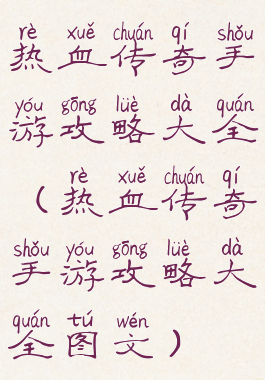 rè xuě chuán qí shǒu
热血传奇手
yóu gōng lüè dà quán
游攻略大全
rè xuě chuán qí
(热血传奇
shǒu yóu gōng lüè dà
手游攻略大
quán tú wén
全图文)